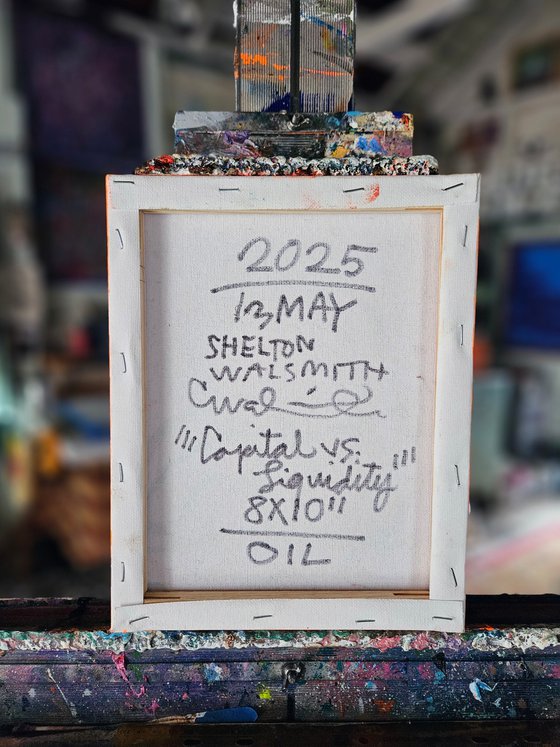 2025
13 MAY
SHELTON
WALSMITH
"'Capital vs.
Liquidity'"
8X10"
OIL